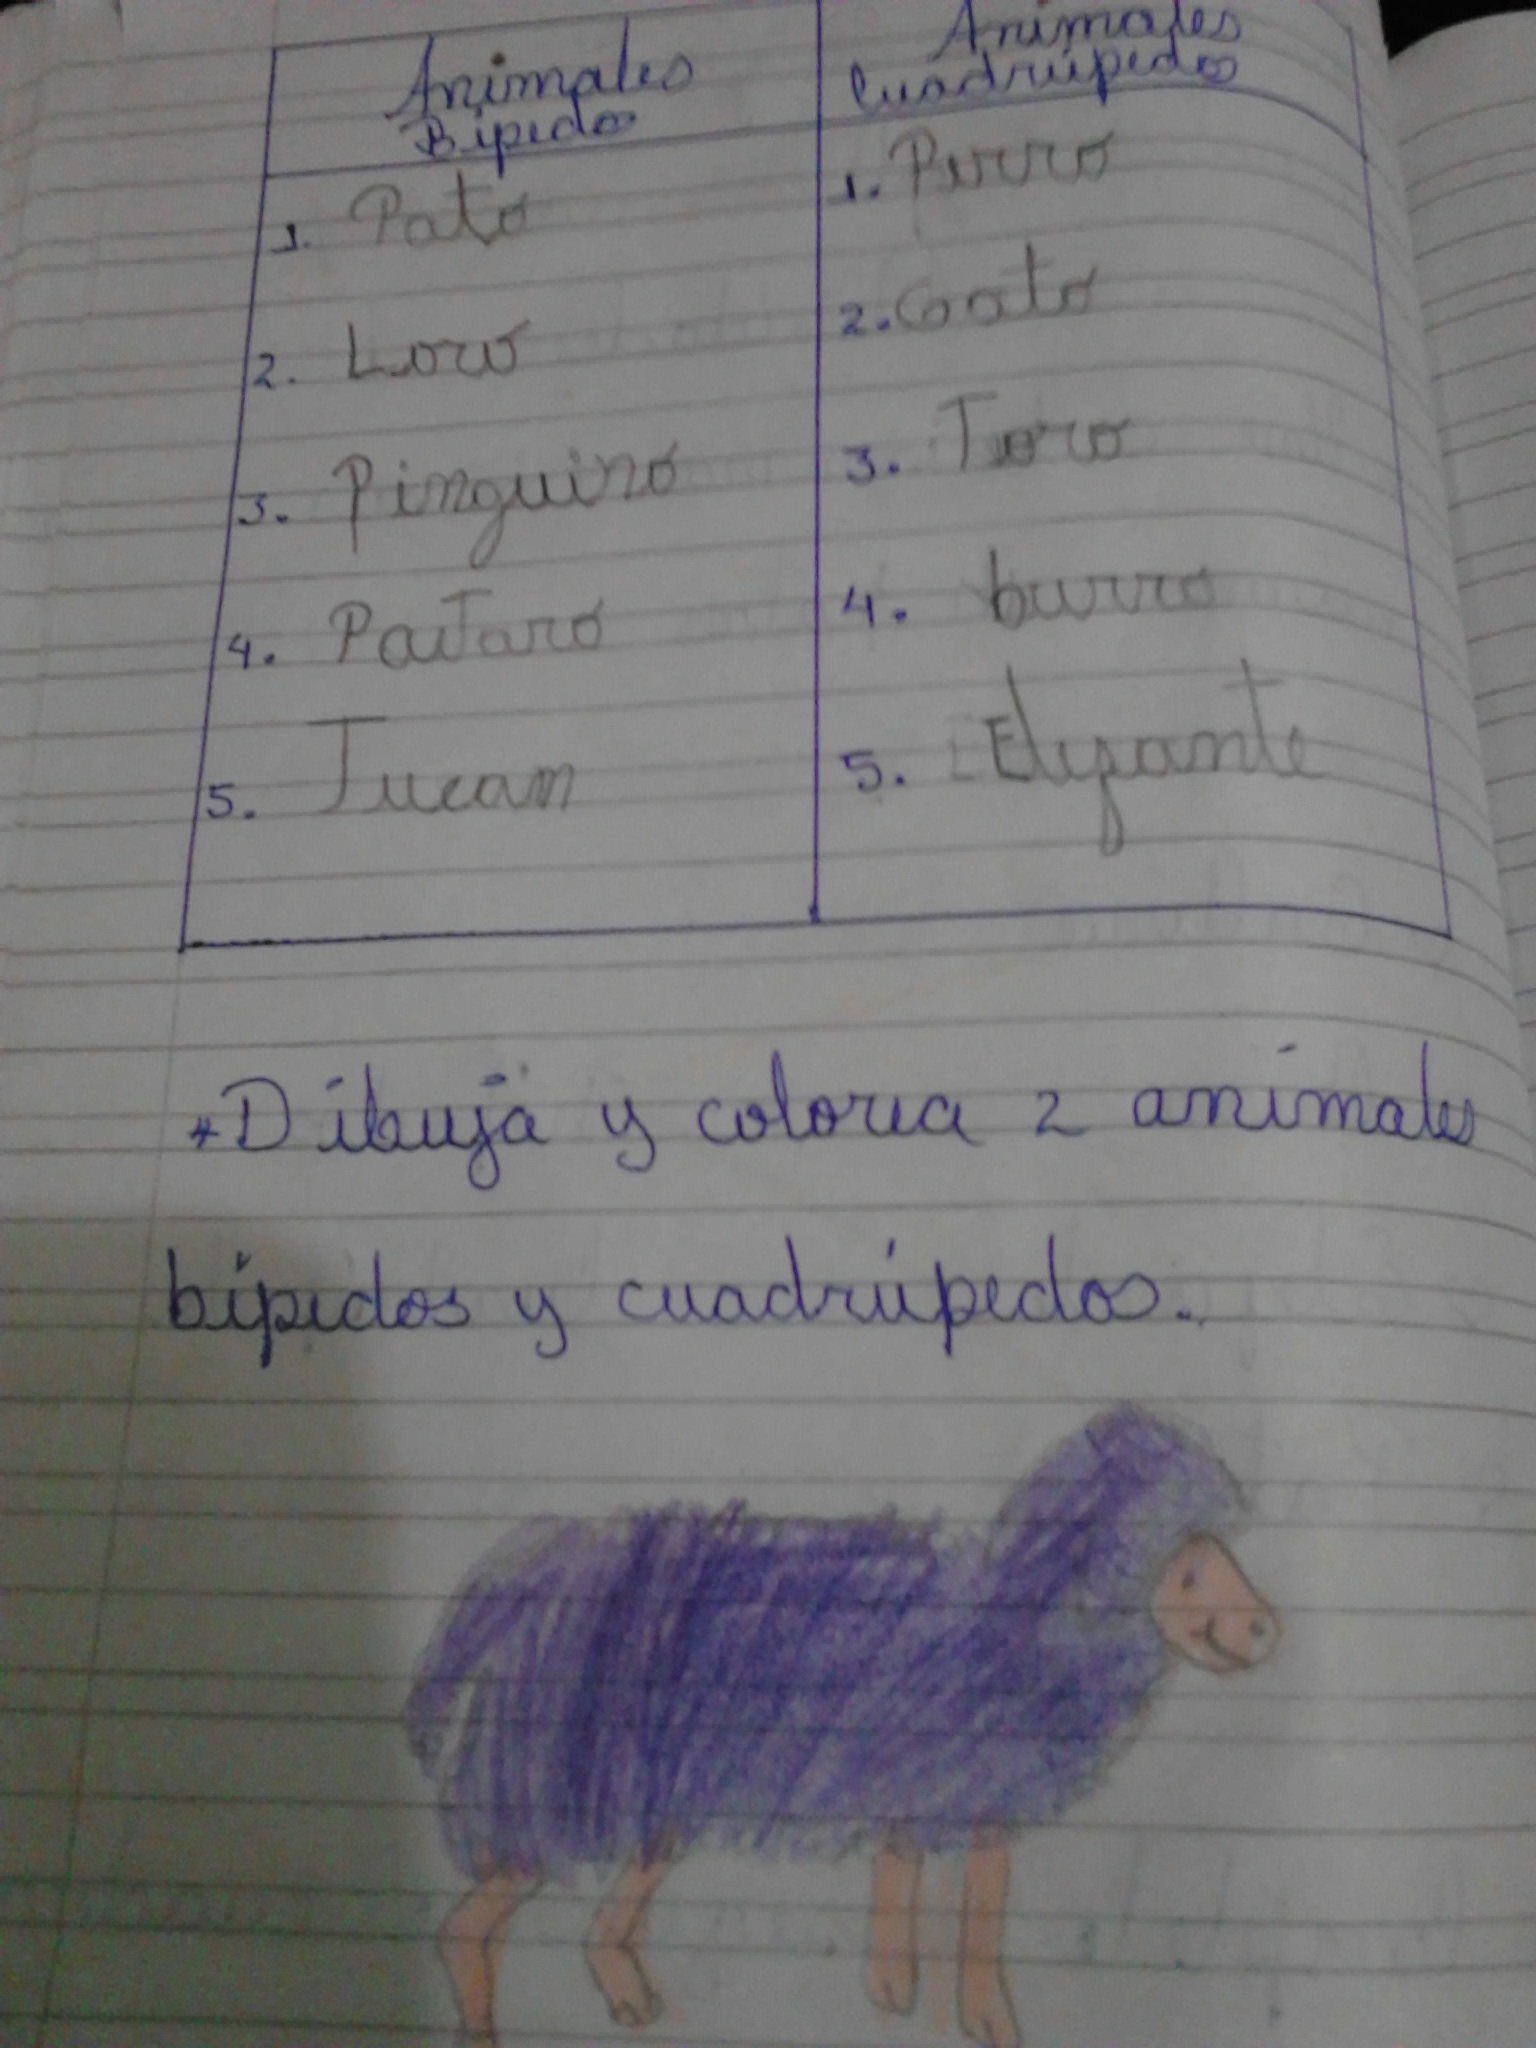 Animales
Bípedos
1. Pato
2. Loro
3. Pinguino
4. PaJaro
5. Tucan
Animales
Cuadrúpedos
1. Perro
2. Gato
3. Toro
4. burro
5. Elefante
*Dibuja y colorea 2 animales
bípedos y cuadrúpedos.